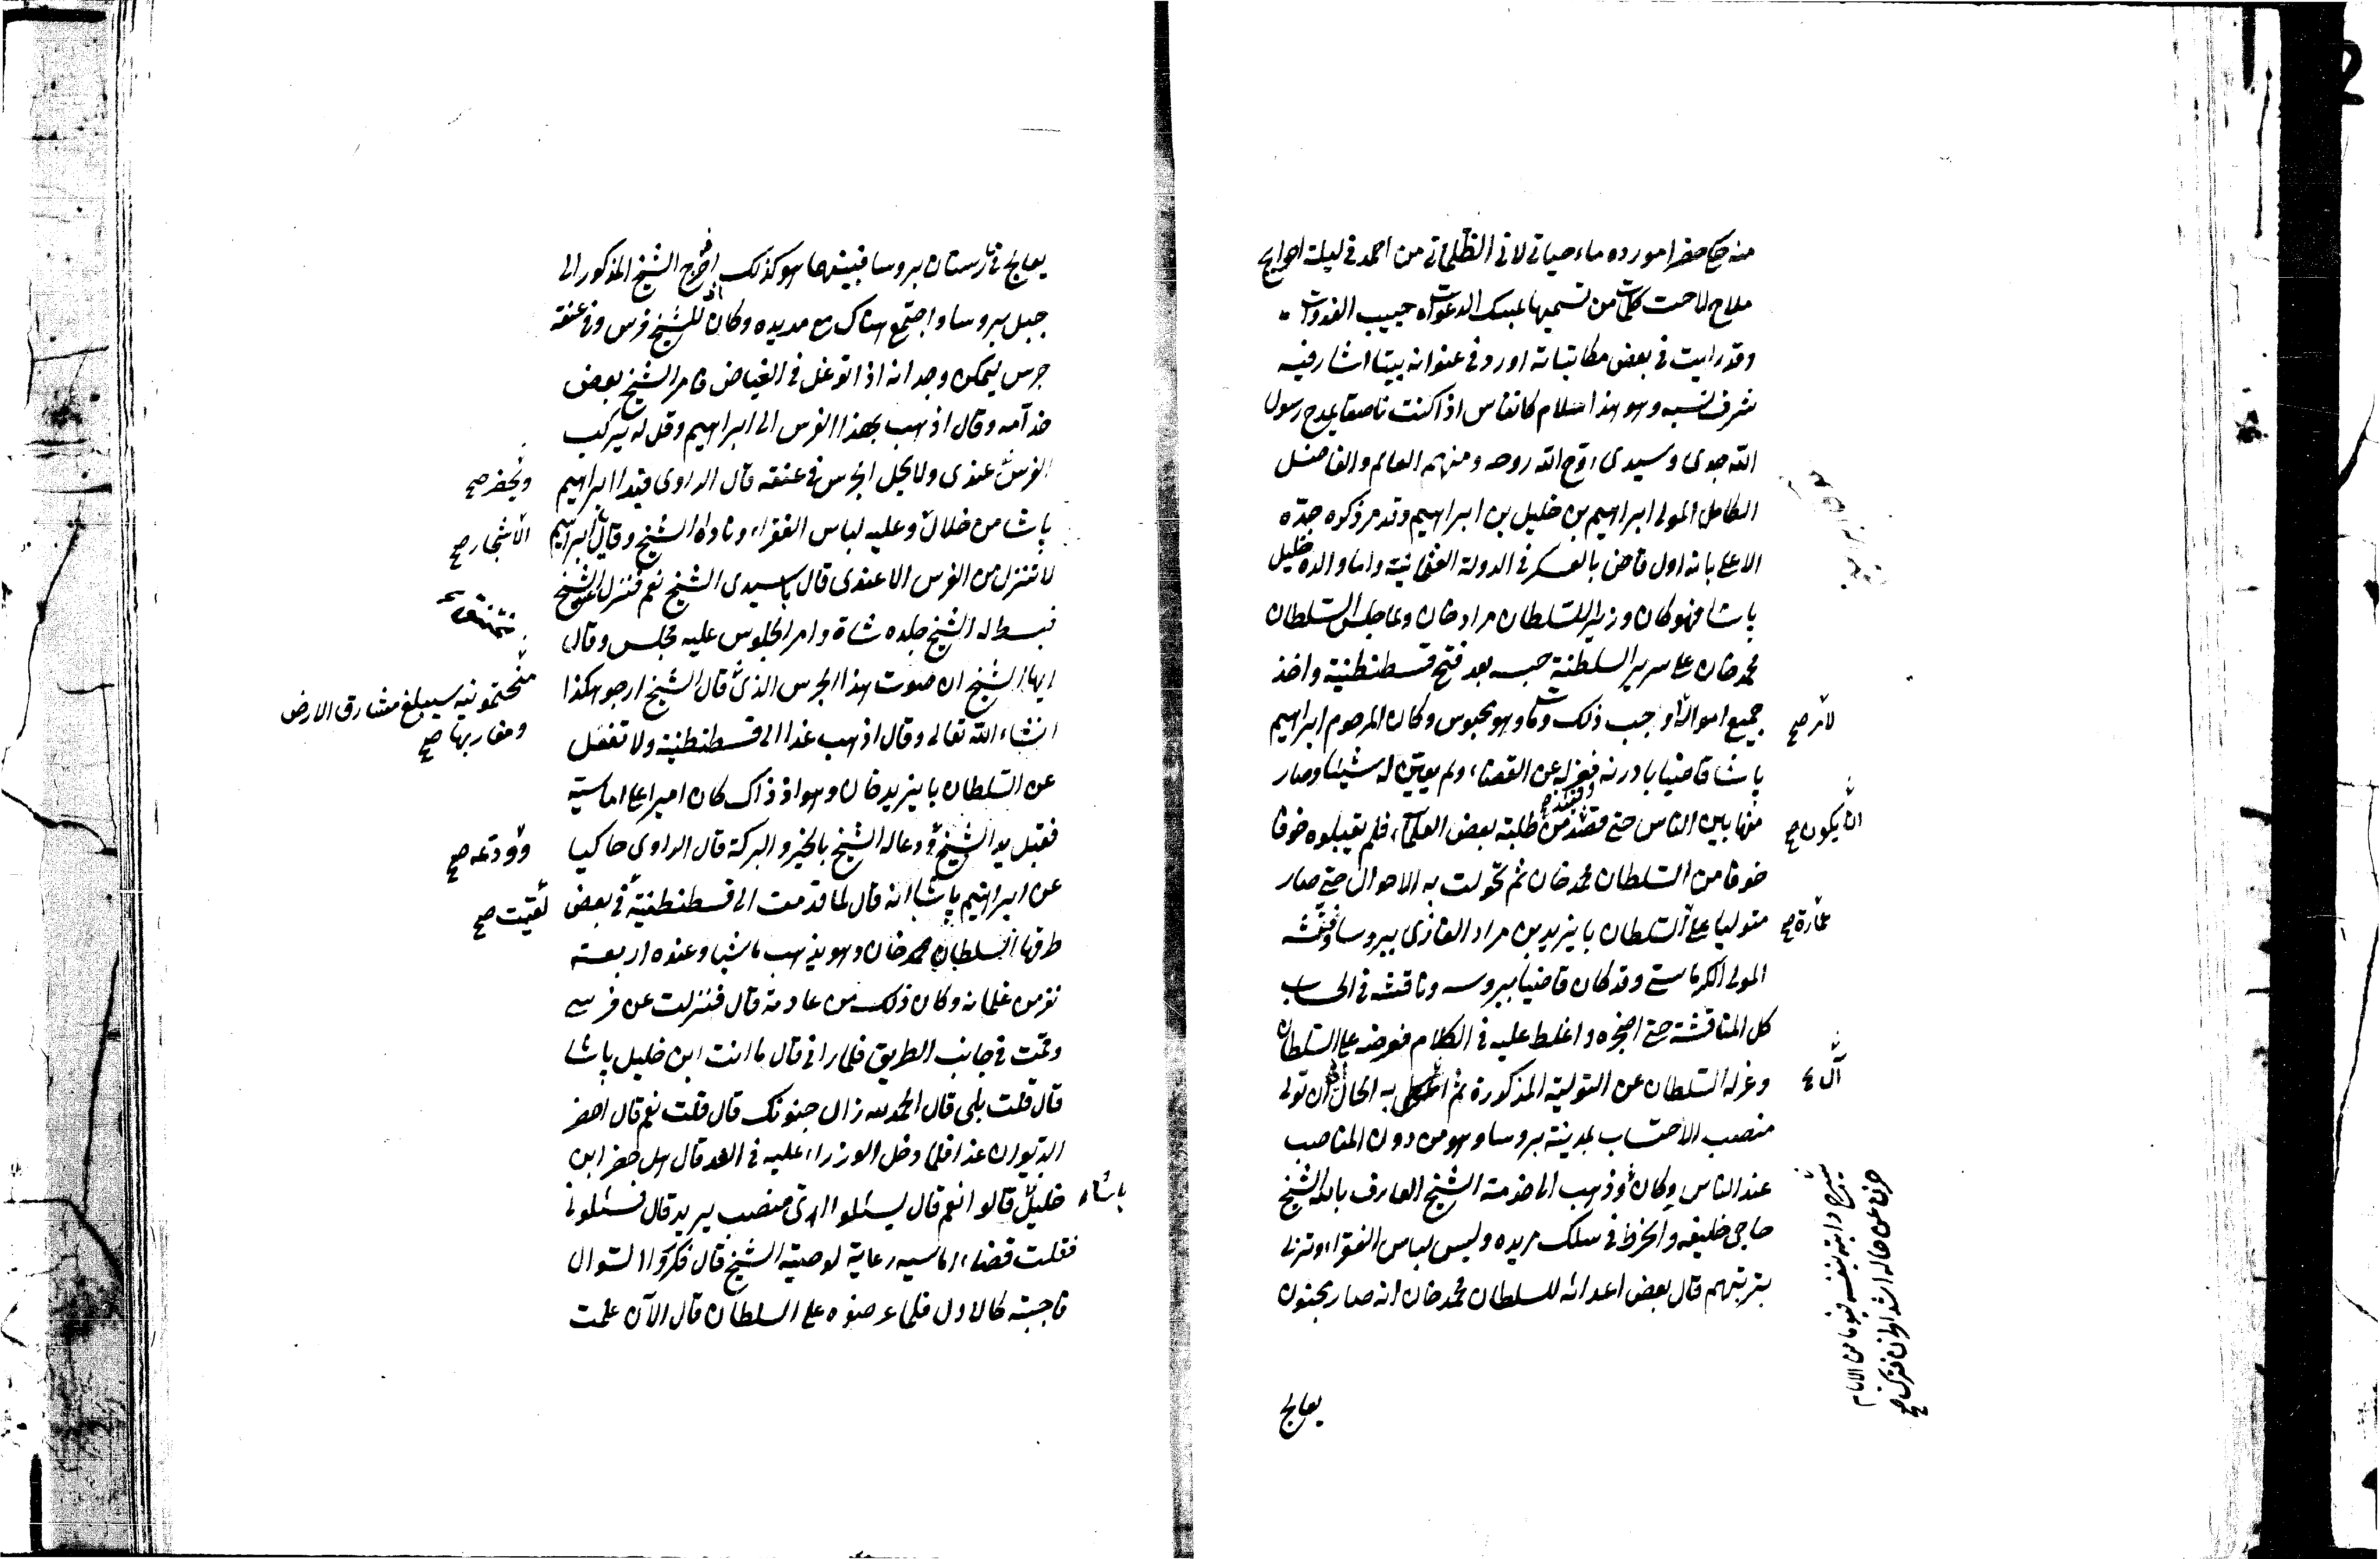 وقد رايت في بعض مكاتباته اورد في عنوانه بيتا اشار فيه
شرف نسبه وهو هذا سلام كانفاس اذا كنت ناصقا بمدح رسول
الله جدى وسيدى روح الله روحه ومنهم العالم والفاضل
الكامل المولى ابراهيم بن خليل بن ابراهيم وقد مر ذكره جده
الاعلى بانه اول قاض بالعسكر في الدولة العثمانية واما والده خليل
پاشا فهو كان وزيرا للسلطان مراد خان ولما جلس السلطان
محمد خان على سرير السلطنة حبسه بعد فتح قسطنطنية واخذ
جميع امواله وجب ذلك ومات وهو محبوس وكان المرحوم ابراهيم
لامر صح
پاشا قاضيا بادرنه فعزله عن القضاء ولم يعين له شيئا وصار
منها بين الناس حتى قصد من طلبة بعض العلماء فلم يقبلوه خوفا
ان يكون صح
خوفا من السلطان محمد خان ثم تحولت به الاحوال حتى صار
متوليا على السلطان بايزيد بن مراد الغازى ببروسا وفتشه
عمارة صح
المولى الكرماستى وقد كان قاضيا ببروسه وناقشه في الحساب
كل المناقشة حتى اضجره واغلط عليه في الكلام فعرضه على السلطان
وعزله السلطان عن التولية المذكورة ثم به الحال الى ان تولى
منصب الاحتساب بمدينة بروسا وهو من دون المناصب
عند الناس وكان وذهب الى خدمة الشيخ العارف بالله الشيخ
حاجى خليفه وانخرط في سلك مريده ولبس لباس الفقراء وتزيا
بزيهم قال بعض اعدائه للسلطان محمد خان انه صار مجنون
يعالج
يعالج في مارستان بروسا فبينما هو كذلك اذ خرج الشيخ المذكور الى
جبل بروسا واجتمع هناك مع مريده وكان للشيخ فرس وفي عنقه
جرس ليمكن وجدانه اذا توغل في الغياض فامر الشيخ بعض
خدامه وقال اذهب بهذا الفرس الى ابراهيم وقل له يركب
الفرس عندى ولا يحل الجرس في عنقه قال الراوى فبدا ابراهيم
ويحضر صح
پاشا من خلال وعليه لباس الفقراء وناداه الشيخ وقال يا ابراهيم
الاشجار صح
لا تنزل من الفرس الا عندى قال يا سيدى الشيخ نعم فنزل عند الشيخ
فبسط له الشيخ جلده شاة وامر الجلوس عليه فجلس وقال
ايها الشيخ ان صوت هذا الجرس الذى قال الشيخ ارجو هكذا
سيبلغ مشارق الارض
ومغاربها صح
انشاء الله تعالى وقال اذهب غدا الى قسطنطنية ولا تغفل
عن السلطان بايزيد خان وهو اذ ذاك كان اميرا على اماسية
فقبل يد الشيخ ودعا له الشيخ بالخير والبركة قال الراوى حاكيا
وودعه صح
عن ابراهيم پاشا انه قال لما قدمت الى قسطنطنية في بعض
لقيت صح
طرقها السلطان محمد خان وهو يذهب ماشيا وعنده اربعة
نفر من غلمانه وكان ذلك من عادته قال فنزلت عن فرسى
وقمت في جانب الطريق فلما رانى قال ما انت ابن خليل پاشا
قال قلت بلى قال الحمد لله زال جنونك قال قلت نعم قال احضر
الديوان غدا فلما دخل الوزراء عليه في الغد قال هل حضر ابن
خليل قالوا نعم قال يسئلوا اى منصب يريد قال فسئلونى
پاشا
فقلت قضاء اماسيه رعاية لوصية الشيخ قال فكرروا السؤال
فاجبته كالاول فلما عرضوه على السلطان قال الآن علمت